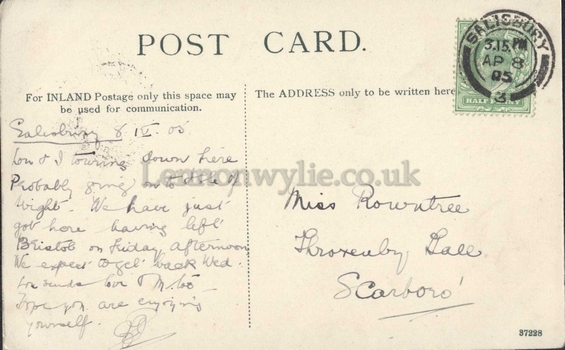 POST CARD.
For INLAND Postage only this space may
be used for communication.
The ADDRESS only to be written here
SALISBURY
3.15 PM
AP 8
05
3
HALFPENNY
Salisbury 8 IV. 05
Lou & I touring down here
Probably going on to Isle of
Wight. We have just
got here having left
Bristol on Friday afternoon
We expect to get back Wed.
Lou sends love
Hope you are enjoying
yourself.
Miss Rowntree
Throxenby Hall
Scarboro'
37228
Leamonwylie.co.uk